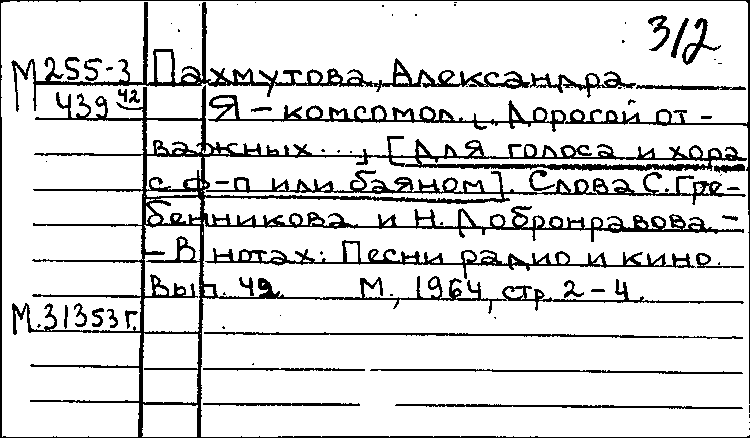 312
М 255-3 Пахмутова, Александра
439 42 Я – комсомол. „Дорогой от-
важных...„ [Для голоса и хора
с ф-п или баяном]. Слова С. Гре-
бенникова и Н. Добронравова. –
– В нотах: Песни радио и кино.
Вып. 49. М., 1964, стр. 2–4.
М.31353г.